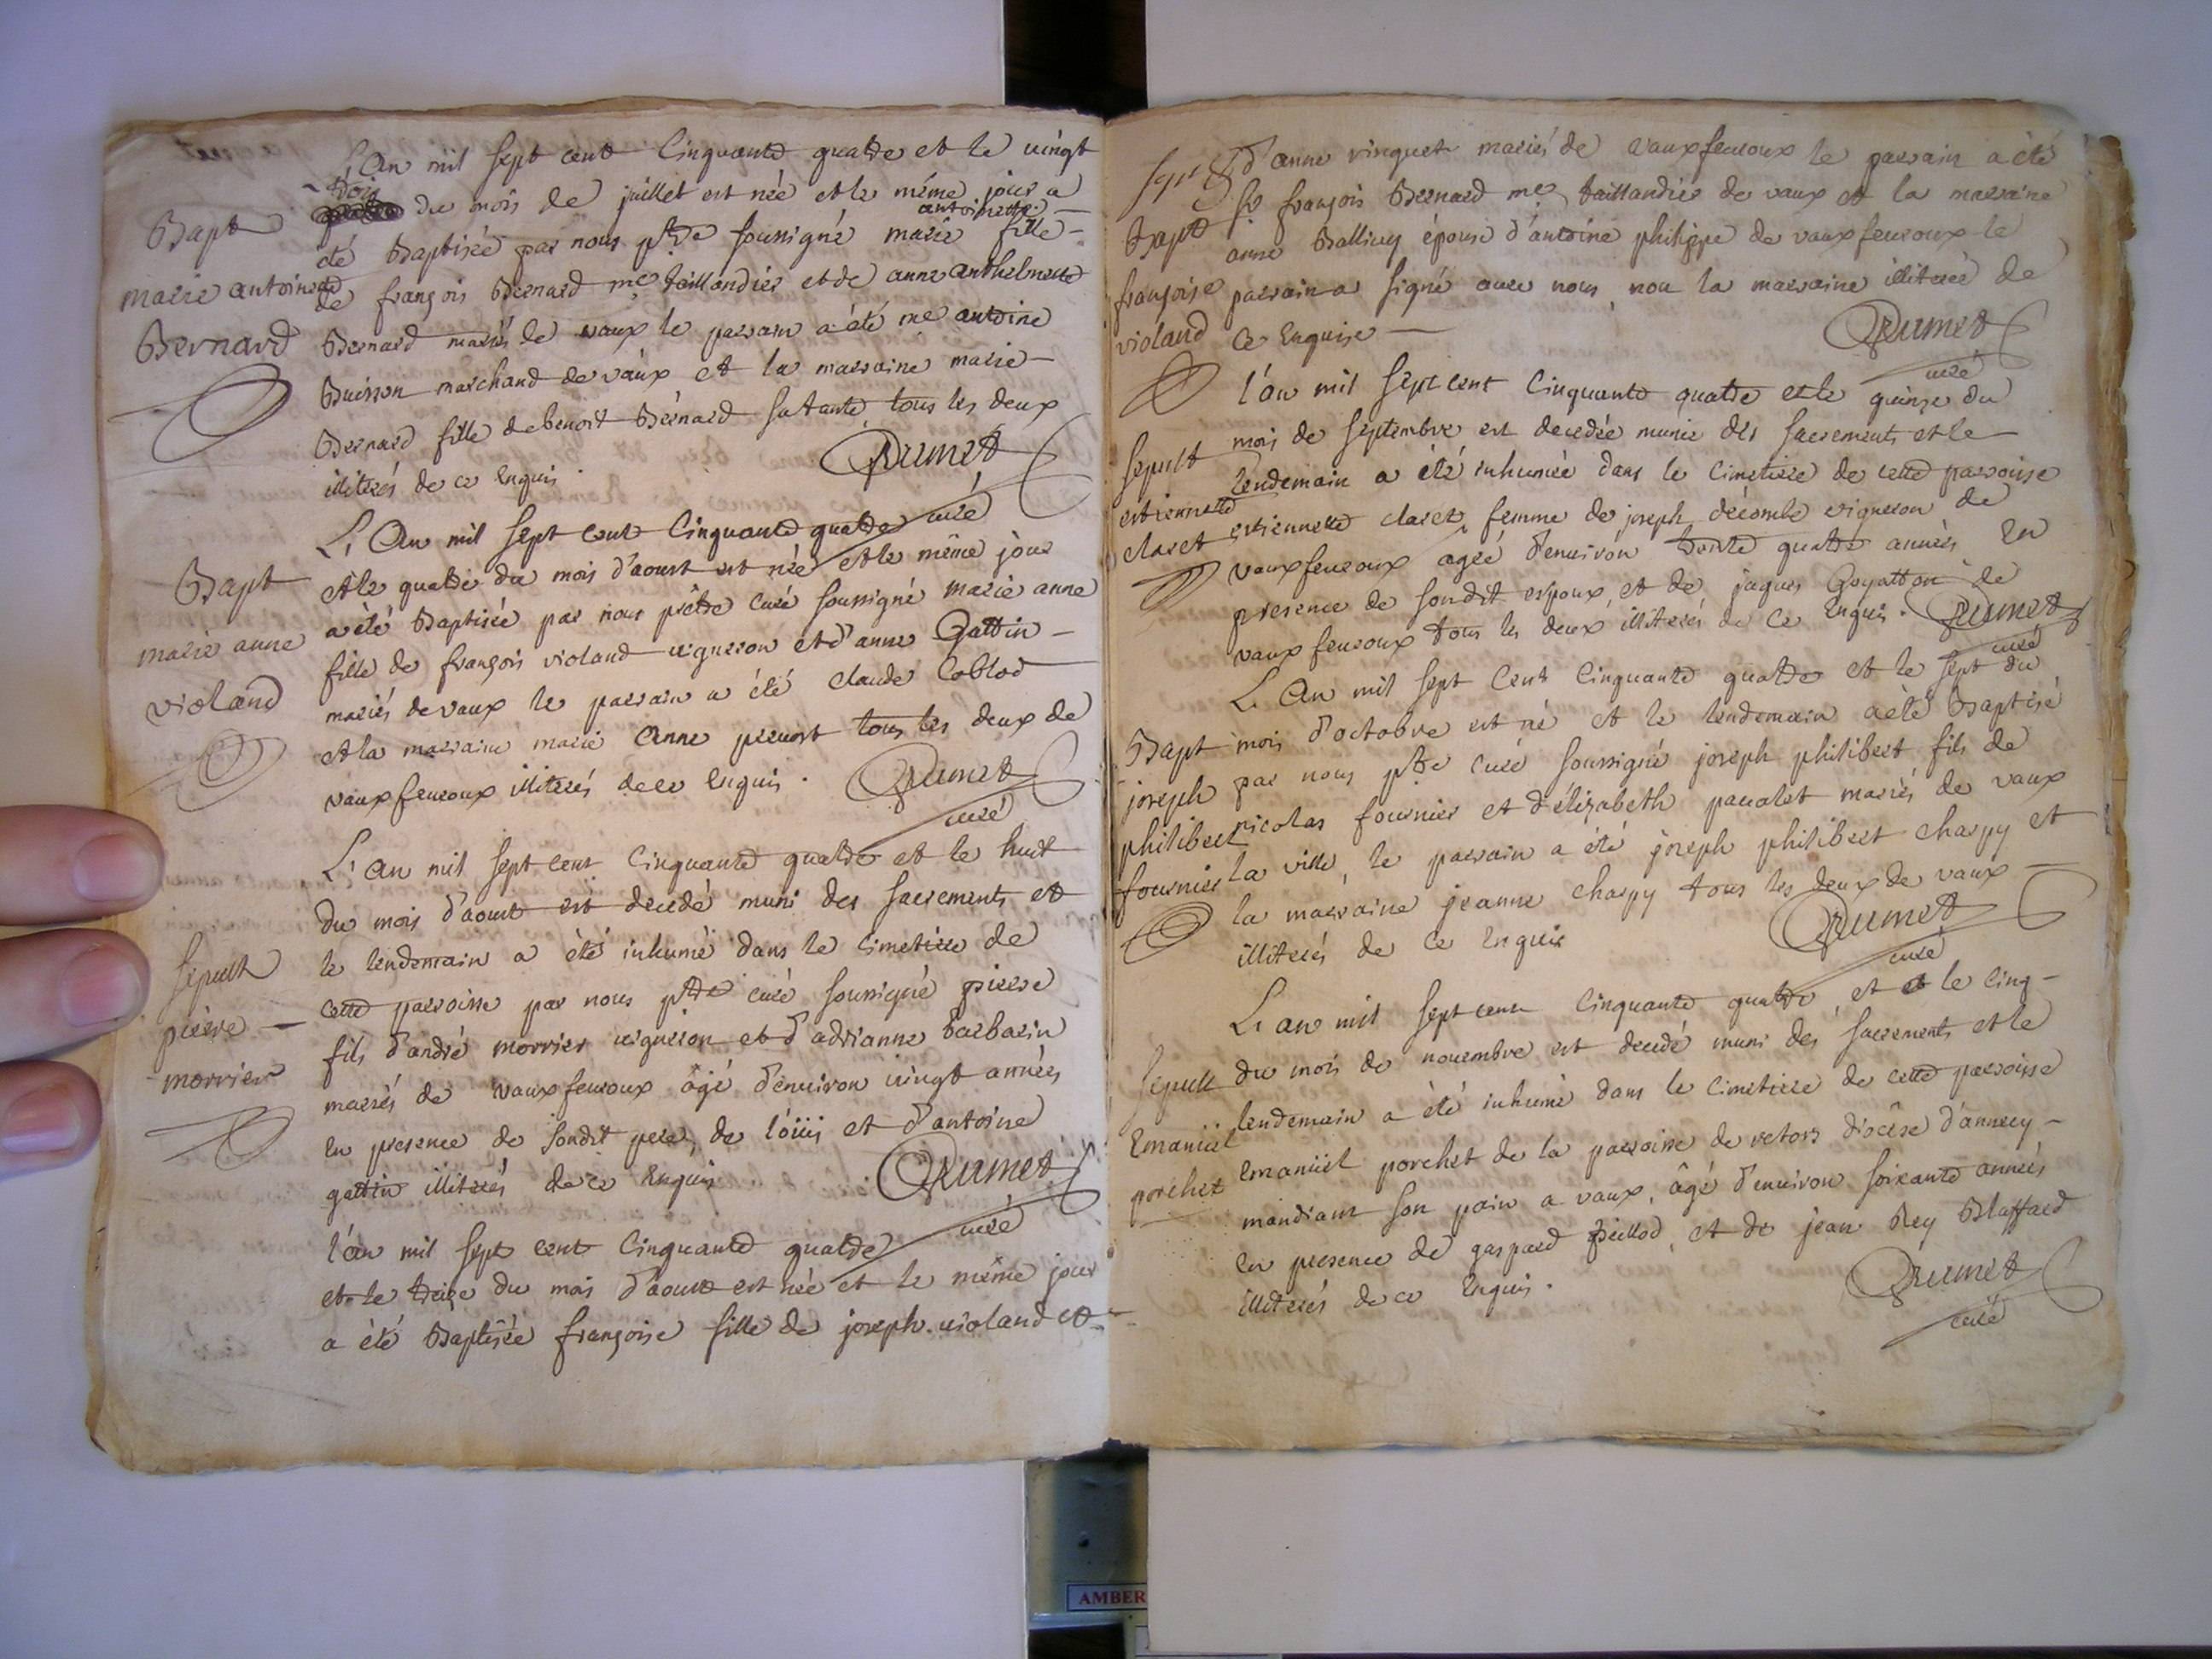 L'An mil sept cent Cinquante quatre et le vingt
trois du mois de juillet est née et le même jour a
Bapt
antoinette
été Baptisée par nous ptre soussigné marie fille
marie antoinette
de françois Bernard me taillandier et de anne anthelmette
Bernard
Bernard mariés de vaux le parrain a été me antoine
Buisson marchand de vaux et la marraine marie
Bernard fille de benoit Bernard sa tante tous les deux
illiterés de ce Enquis
Rumet
curé
L'An mil sept cent Cinquante quatre
et le quatre du mois d'aoust est née et le même jour
Bapt
a été Baptisée par nous prêtre curé soussigné marie anne
marie anne
fille de françois violand vigneron et d'anne Gattin
violand
mariés de vaux le parrain a été claude Coblod
et la marraine marie Anne prevost tous les deux de
vaux fevroux illiterés de ce Enquis .
Rumet
curé
L'an mil sept cent Cinquante quatre et le huit
du mois d'aoust est decedé muni des sacrements et
le lendemain a été inhumé dans le Cimetiere de
sepult
cette parroisse par nous ptre curé soussigné pierre
pierre
fils d'andré morrier vigneron et d'adrianne barbarin
morrier
mariés de vaux fevroux âgé d'environ vingt années
en presence de sondit pere, de loüis et d'antoine
gattin illiterés de ce Enquis
Rumet
curé
l'an mil sept cent Cinquante quatre
et le treize du mois d'aoust est née et le même jour
a été Baptisée françoise fille de joseph violand et
d'anne vinquet mariés de vaux fevroux le parrain a été
sr françois Bernard me taillandier de vaux et la marraine
Bapt
anne Ballivy épouse d'antoine philippe de vaux fevroux le
françoise
parrain a signé avec nous, non la marraine illiterée de
violand
ce Enquise
Rumet
curé
l'an mil sept cent Cinquante quatre et le quinze du
mois de septembre est decedée munie des sacrements et le
sepult
lendemain a été inhumée dans le Cimetiere de cette parroisse
estiennette
estiennette claret femme de joseph décombe vigneron de
claret
vaux fevroux agée d'environ trente quatre années En
presence de sondit espoux, et de jaques Goyatton de
vaux fevroux tous les deux illiterés de ce Enquis .
Rumet
curé
L'An mil sept Cent Cinquante quatre et le sept du
Bapt
mois d'octobre est né et le lendemain a été Baptisé
joseph
par nous ptre curé soussigné joseph philibert fils de
philibert
nicolas fournier et d'élizabeth pavalet mariés de vaux
fournier
la ville, le parrain a été joseph philibert charpy et
la marraine jeanne charpy tous les deux de vaux
illiterés de ce Enquis
Rumet
curé
L'an mil sept cent Cinquante quatre, et le cinq
du mois de novembre est decedé muni des sacrements et le
sepult
lendemain a été inhumé dans le Cimetiere de cette parroisse
Emaniiel
Emaniiel porchet de la parroisse de vetors diocêse d'annecy
porchet
mandiant son pain a vaux, âgé d'environ soixante années
en presence de gaspard peillod, et de jean Rey Blaffard
illiterés de ce Enquis .
Rumet
curé
AMBER